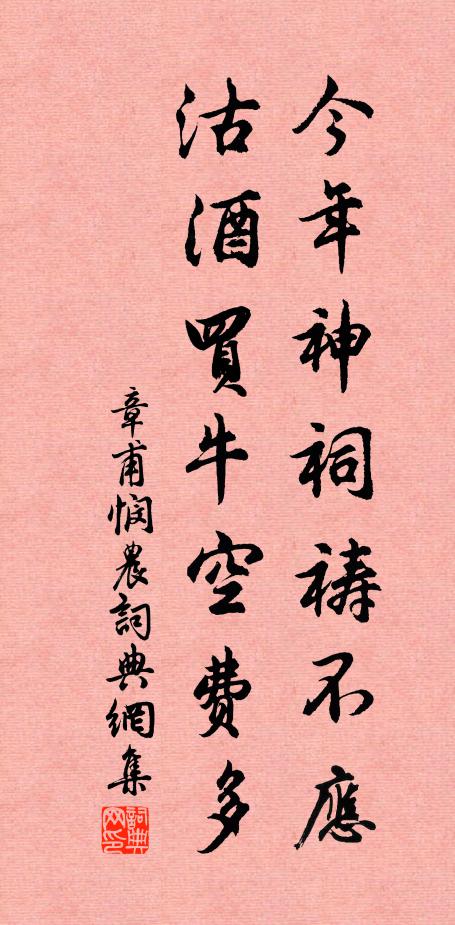 今年神祠祷不應
沽酒買牛空費多
章甫悯農詞典網集
詞典网印